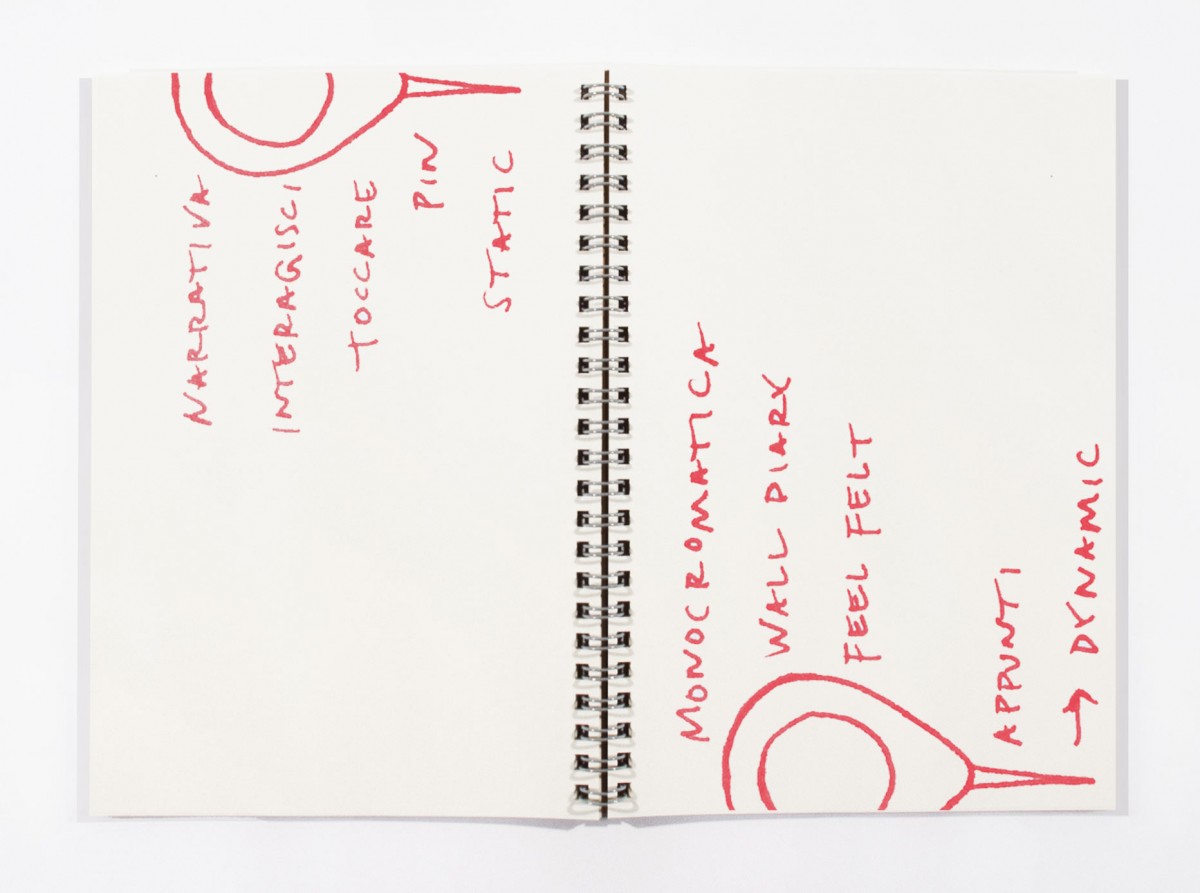 NARRATIVA
INTERAGISCI
TOCCARE
PIN
STATIC
MONOCROMATICA
WALL DIARY
FEEL FELT
APPUNTI
→ DYNAMIC